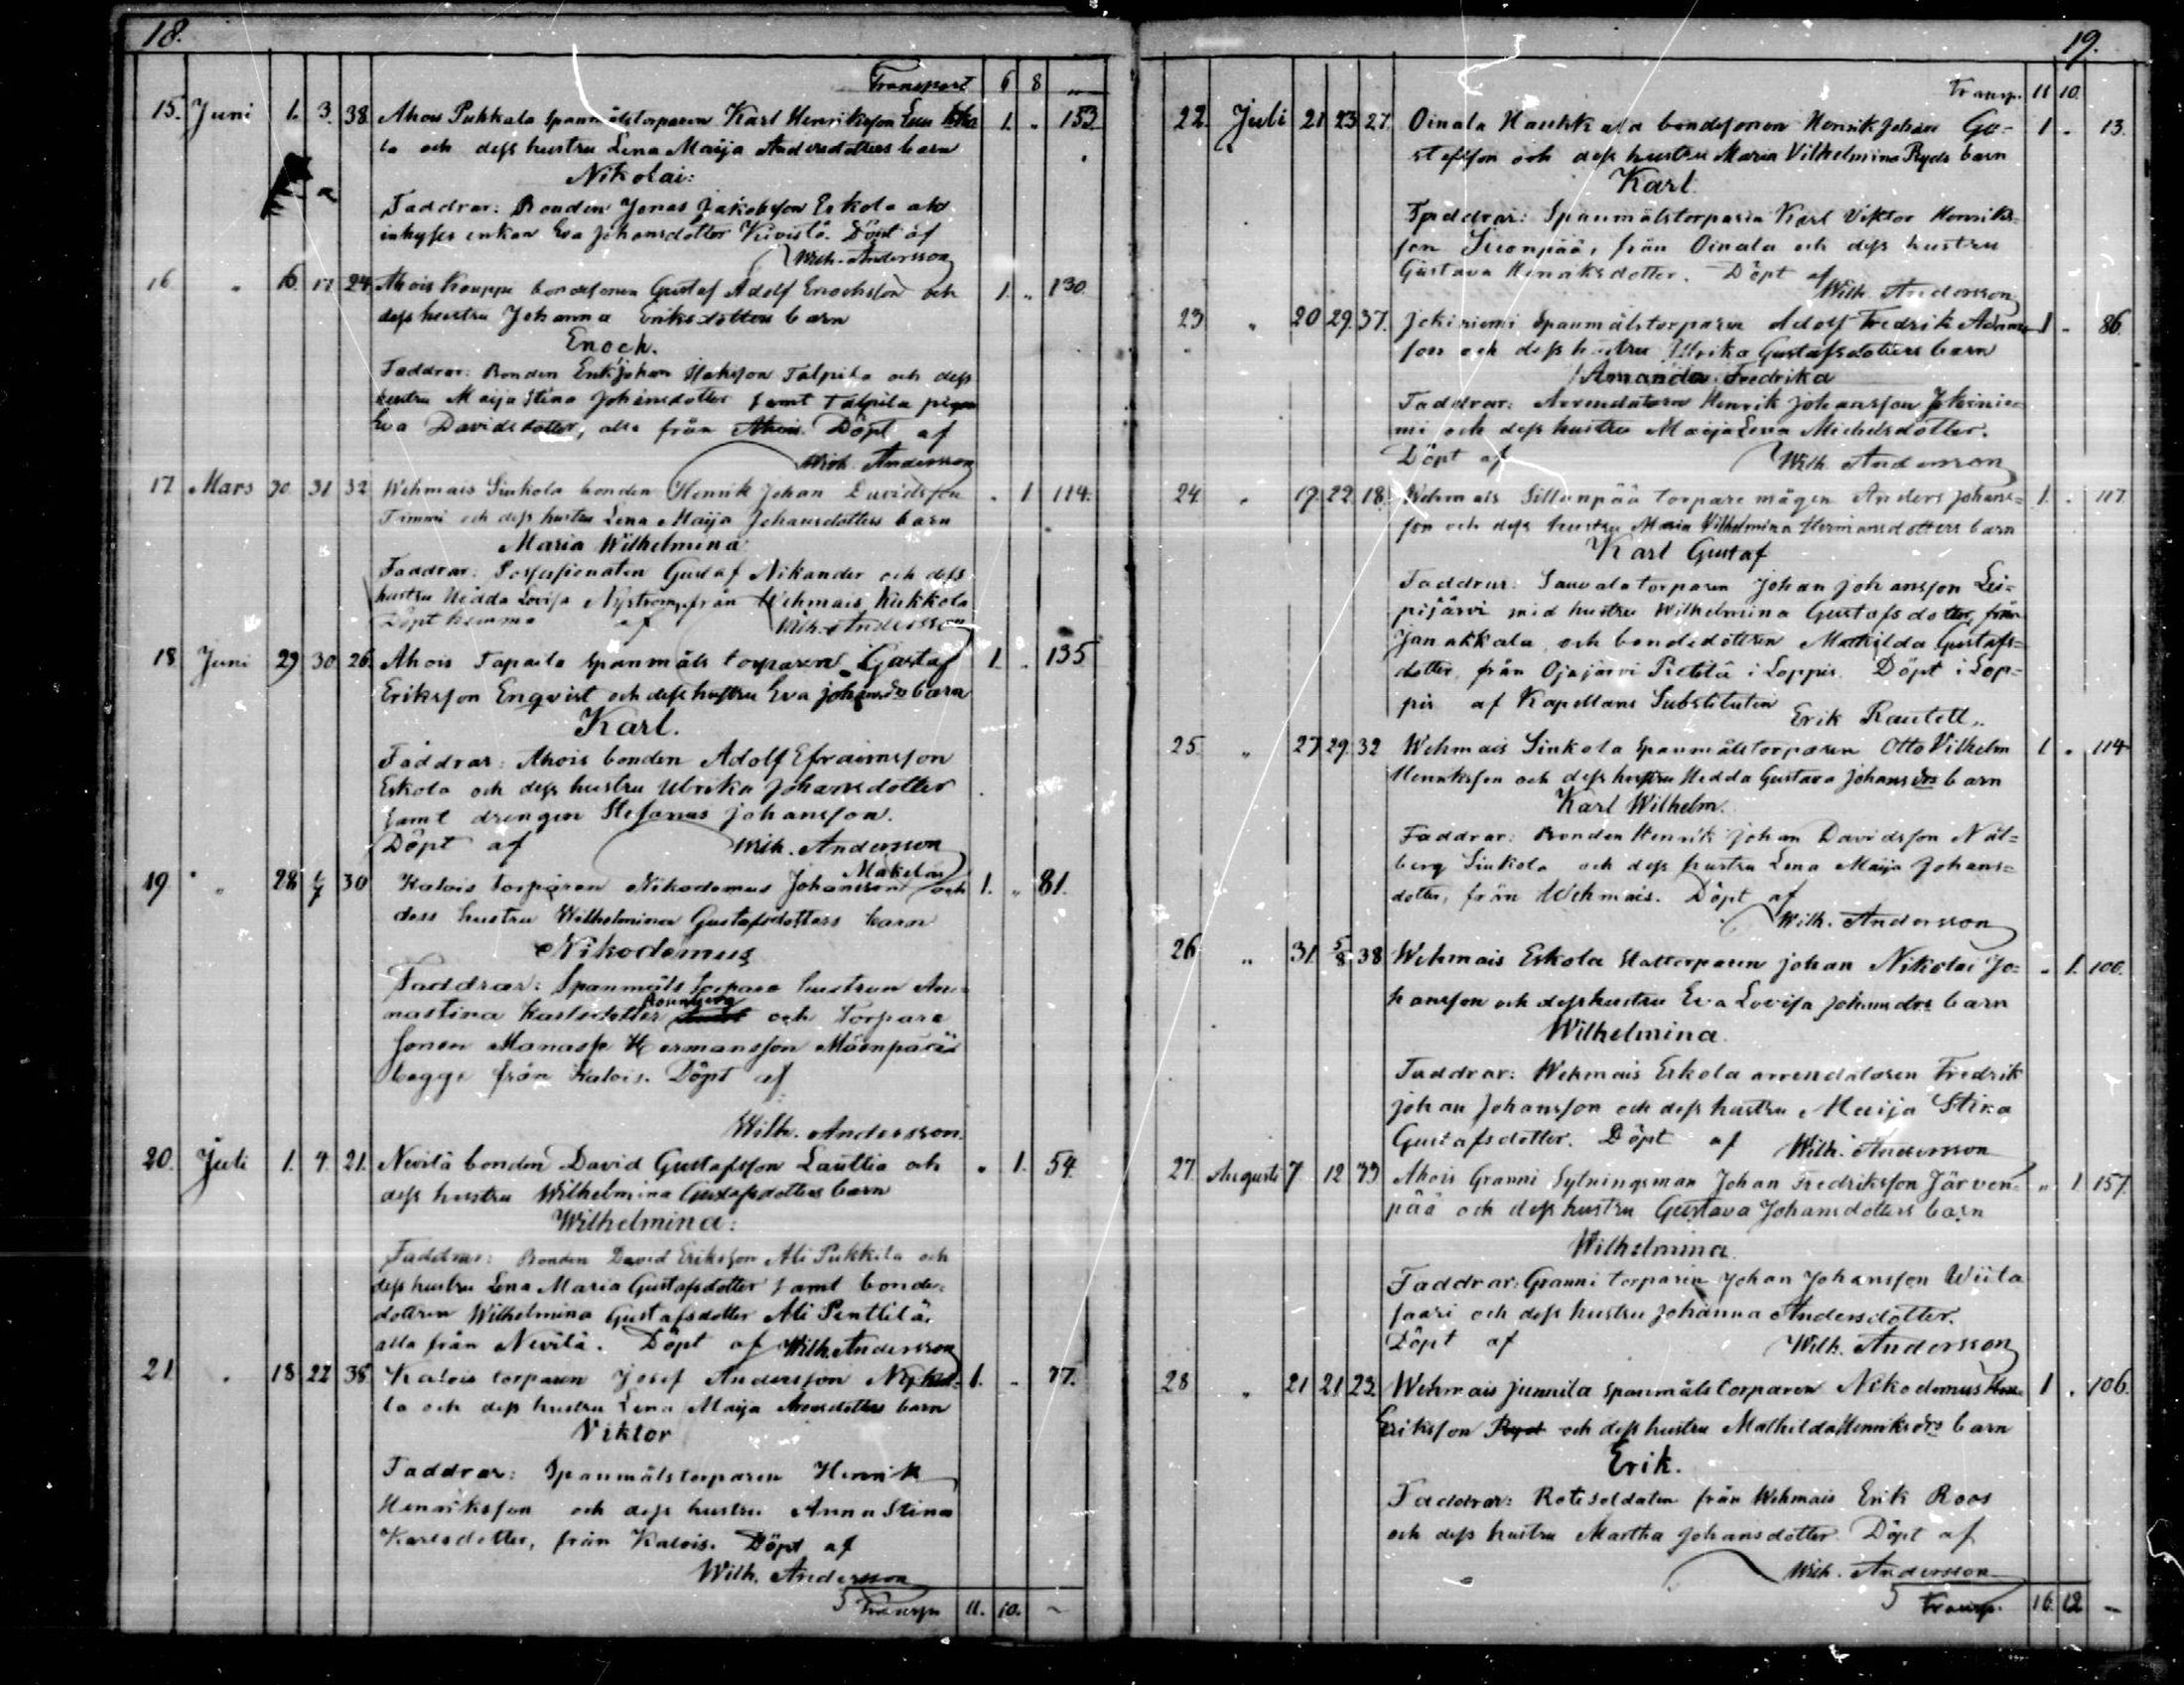 18.
Transport 6 8 "
15. Juni 1. 3. 38. Ahois Pukkala spanmålstorparen Karl Henriksson 1. " 153.
la och dess hustru Lena Maija Andersdotters barn
Nikolai:
Faddrar: Bonden Jonas Jakobsson Eskola
inhyses enkan Eva Johansdotter Kivistö. Döpt af
Wilh. Andersson
16 " 16. 17 24. Ahois Kauppi bondesonen Gustaf Adolf Enochsson och 1. " 130.
dess hustru Johanna Eriksdotters barn
Enoch.
Faddrar: Bonden Erik Johan Isaksson Talpila och dess
hustru Maija Stina Johansdotter samt Talpila pigan
Eva Davidsdotter, alla från Ahois. Döpt af
Wilh. Andersson
17 Mars 30 31 32 Wehmais Sinkola bonden Henrik Johan Davidsson " 1 114.
Timmi och dess hustru Lena Maija Johansdotters barn
Maria Wilhelmina
Faddrar: Possessionaten Gustaf Nikander och dess
hustru Hedda Lovisa Nyström, från Wehmais Kukkola
Döpt hemma af Wilh. Andersson
18. Juni 29 30. 26. Ahois Tapaila spanmåls torparen Gustaf 1. " 135
Eriksson Enqvist och dess hustru Eva Johansdrs barn
Karl.
Faddrar: Ahois bonden Adolf Efraimsson
Eskola och dess hustru Ulrika Johansdotter
samt drengen Stefanus Johansson.
Döpt af Wilh. Andersson
19. " 28 1/7 30 Kalois torparen Nikodemus Johansson Mäkelä och 1. " 81.
dess hustru Wilhelmina Gustafsdotters barn
Nikodemus
Faddrar: Spanmåls torpare hustrun An-
nastina Karlsdotter och Torpare
sonen Manasse Hermansson Mäenpää
bägge från Kalois. Döpt af
Wilh. Andersson.
20. Juli 1. 4. 21. Nevilä bonden David Gustafsson Lauttia och " 1. 54.
dess hustru Wilhelmina Gustafsdotters barn
Wilhelmina:
Faddrar: Bonden David Eriksson Ali Pukkila och
dess hustru Lena Maria Gustafsdotter samt bonde-
dottren Wilhelmina Gustafsdotter Ali Penttilä,
alla från Nevilä. Döpt af Wilh. Andersson
21. " 18 22 38. Kalois torparen Josef Andersson 1. " 77.
la och dess hustru Lena Maija barn
Viktor
Faddrar: Spanmålstorparen Henrik
Henriksson och dess hustru Anna Stina
Karlsdotter, från Kalois. Döpt af
Wilh. Andersson
Transp. 11. 10. "
19.
Transp. 11 10.
22. Juli 21 23 27. Oinala Haukkala bondesonen Henrik Johan Gu- 1 " 13.
stafsson och dess hustru Maria Vilhelmina Ryds barn
Karl.
Faddrar: Spanmålstorparen Karl Viktor Henriks-
son från Oinala och dess hustru
Gustava Henriksdotter. Döpt af
Wilh. Andersson
23 " 20 29. 37. Jokiniemi spanmålstorparen Adolf Fredrik Adams- 1 " 86.
son och dess hustru Ulrika Gustafsdotters barn
Amanda Fredrika
Faddrar: Arrendatorn Henrik Johansson Jokinie-
mi och dess hustru Maija Lena Michelsdotter.
Döpt af Wilh. Andersson
24. " 17 22 18. Wehmais Sillanpää torpare mågen Anders Johans- 1. " 117.
son och dess hustru Maria Vilhelmina Hermansdotters barn
Karl Gustaf
Faddrar: torparen Johan Johansson Lei-
pijärvi med hustru Wilhelmina Gustafsdotter, från
Janakkala, och bondedottren Mathilda Gustafs-
dotter, från Ojajärvi Pietilä i Loppis. Döpt i Lop-
pis af Kapellans Substituten
Erik Rautell.
25. " 27 29. 32 Wehmais Sinkola spanmålstorparen Otto Vilhelm 1 " 114
Henriksson och dess hustru Hedda Gustava Johansdrs barn
Karl Wilhelm.
Faddrar: Bonden Henrik Johan Davidsson Näl-
berg Sinkola och dess hustru Lena Maija Johans-
dotter, från Wehmais. Döpt af
Wilh. Andersson
26 " 31. 5/8 38 Wehmais Eskola torparen Johan Nikolai Jo- " 1. 100.
hansson och dess hustru Eva Lovisa Johansdrs barn
Wilhelmina.
Faddrar: Wehmais Eskola arrendatoren Fredrik
Johan Johansson och dess hustru Maija Stina
Gustafsdotter. Döpt af Wilh. Andersson
27. Augusti 7 12 33 Ahois Granni Sytningsman Johan Fredriksson Järven- " 1 157.
pää och dess hustru Gustava Johansdotters barn
Wilhelmina.
Faddrar: Granni torparen Johan Johansson Wiita
saari och dess hustru Johanna Andersdotter.
Döpt af Wilh. Andersson
28 " 21 21 23. Wehmais Junnila spanmålstorparen Nikodemus 1 " 106.
Eriksson Ryd och dess hustru Mathilda Henriksdrs barn
Erik.
Faddrar: Rotesoldaten från Wehmais Erik Roos
och dess hustru Martha Johansdotter. Döpt af
Wilh. Andersson
Transp. 16. 12 "